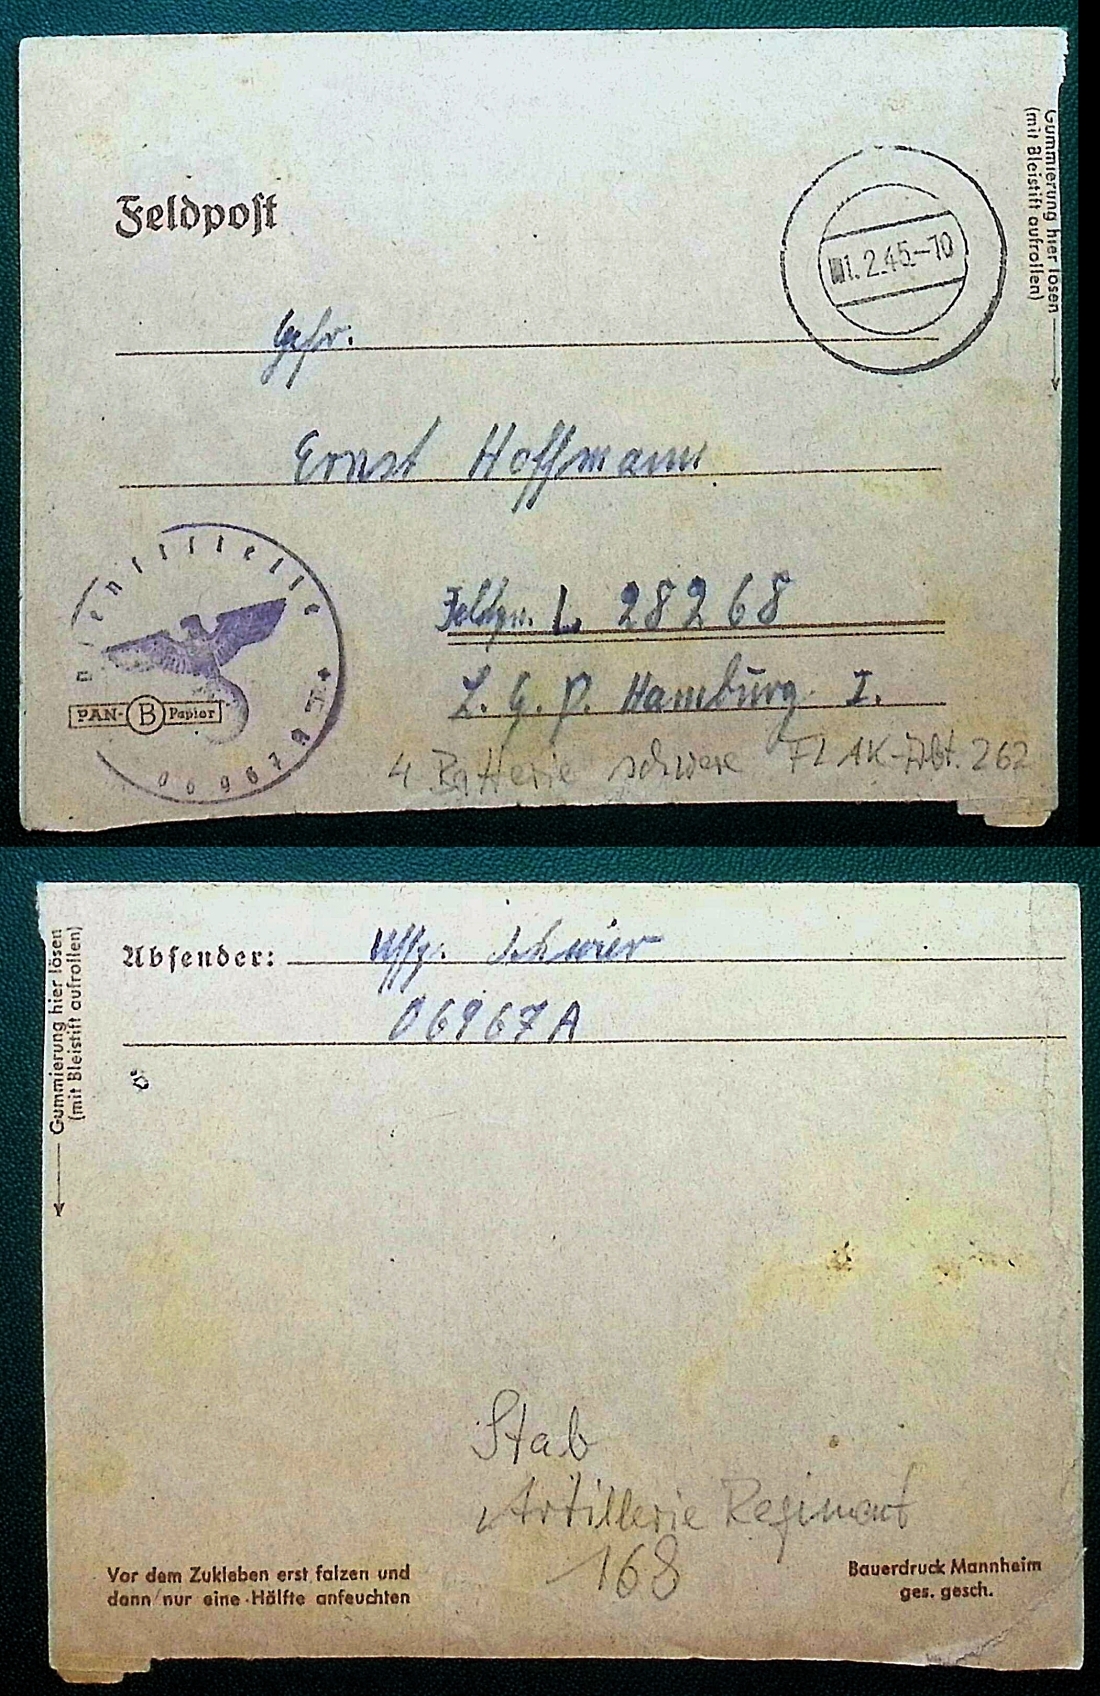 Feldpost
Gummierung hier lösen
(mit Bleistift aufrollen)
1.2.45.-10
Gefr.
Ernst Hoffmann
Feldpn. L 28268
L. G. P. Hamburg I.
enststelle
06967A
PAN-B Papier
4 Batterie schwere FLAK-Abt. 262
Gummierung hier lösen
(mit Bleistift aufrollen)
Absender: Uffz. Schwier
06967A
Stab
Artillerie Regiment
168
Vor dem Zukleben erst falzen und
dann nur eine Hälfte anfeuchten
Bauerdruck Mannheim
ges. gesch.